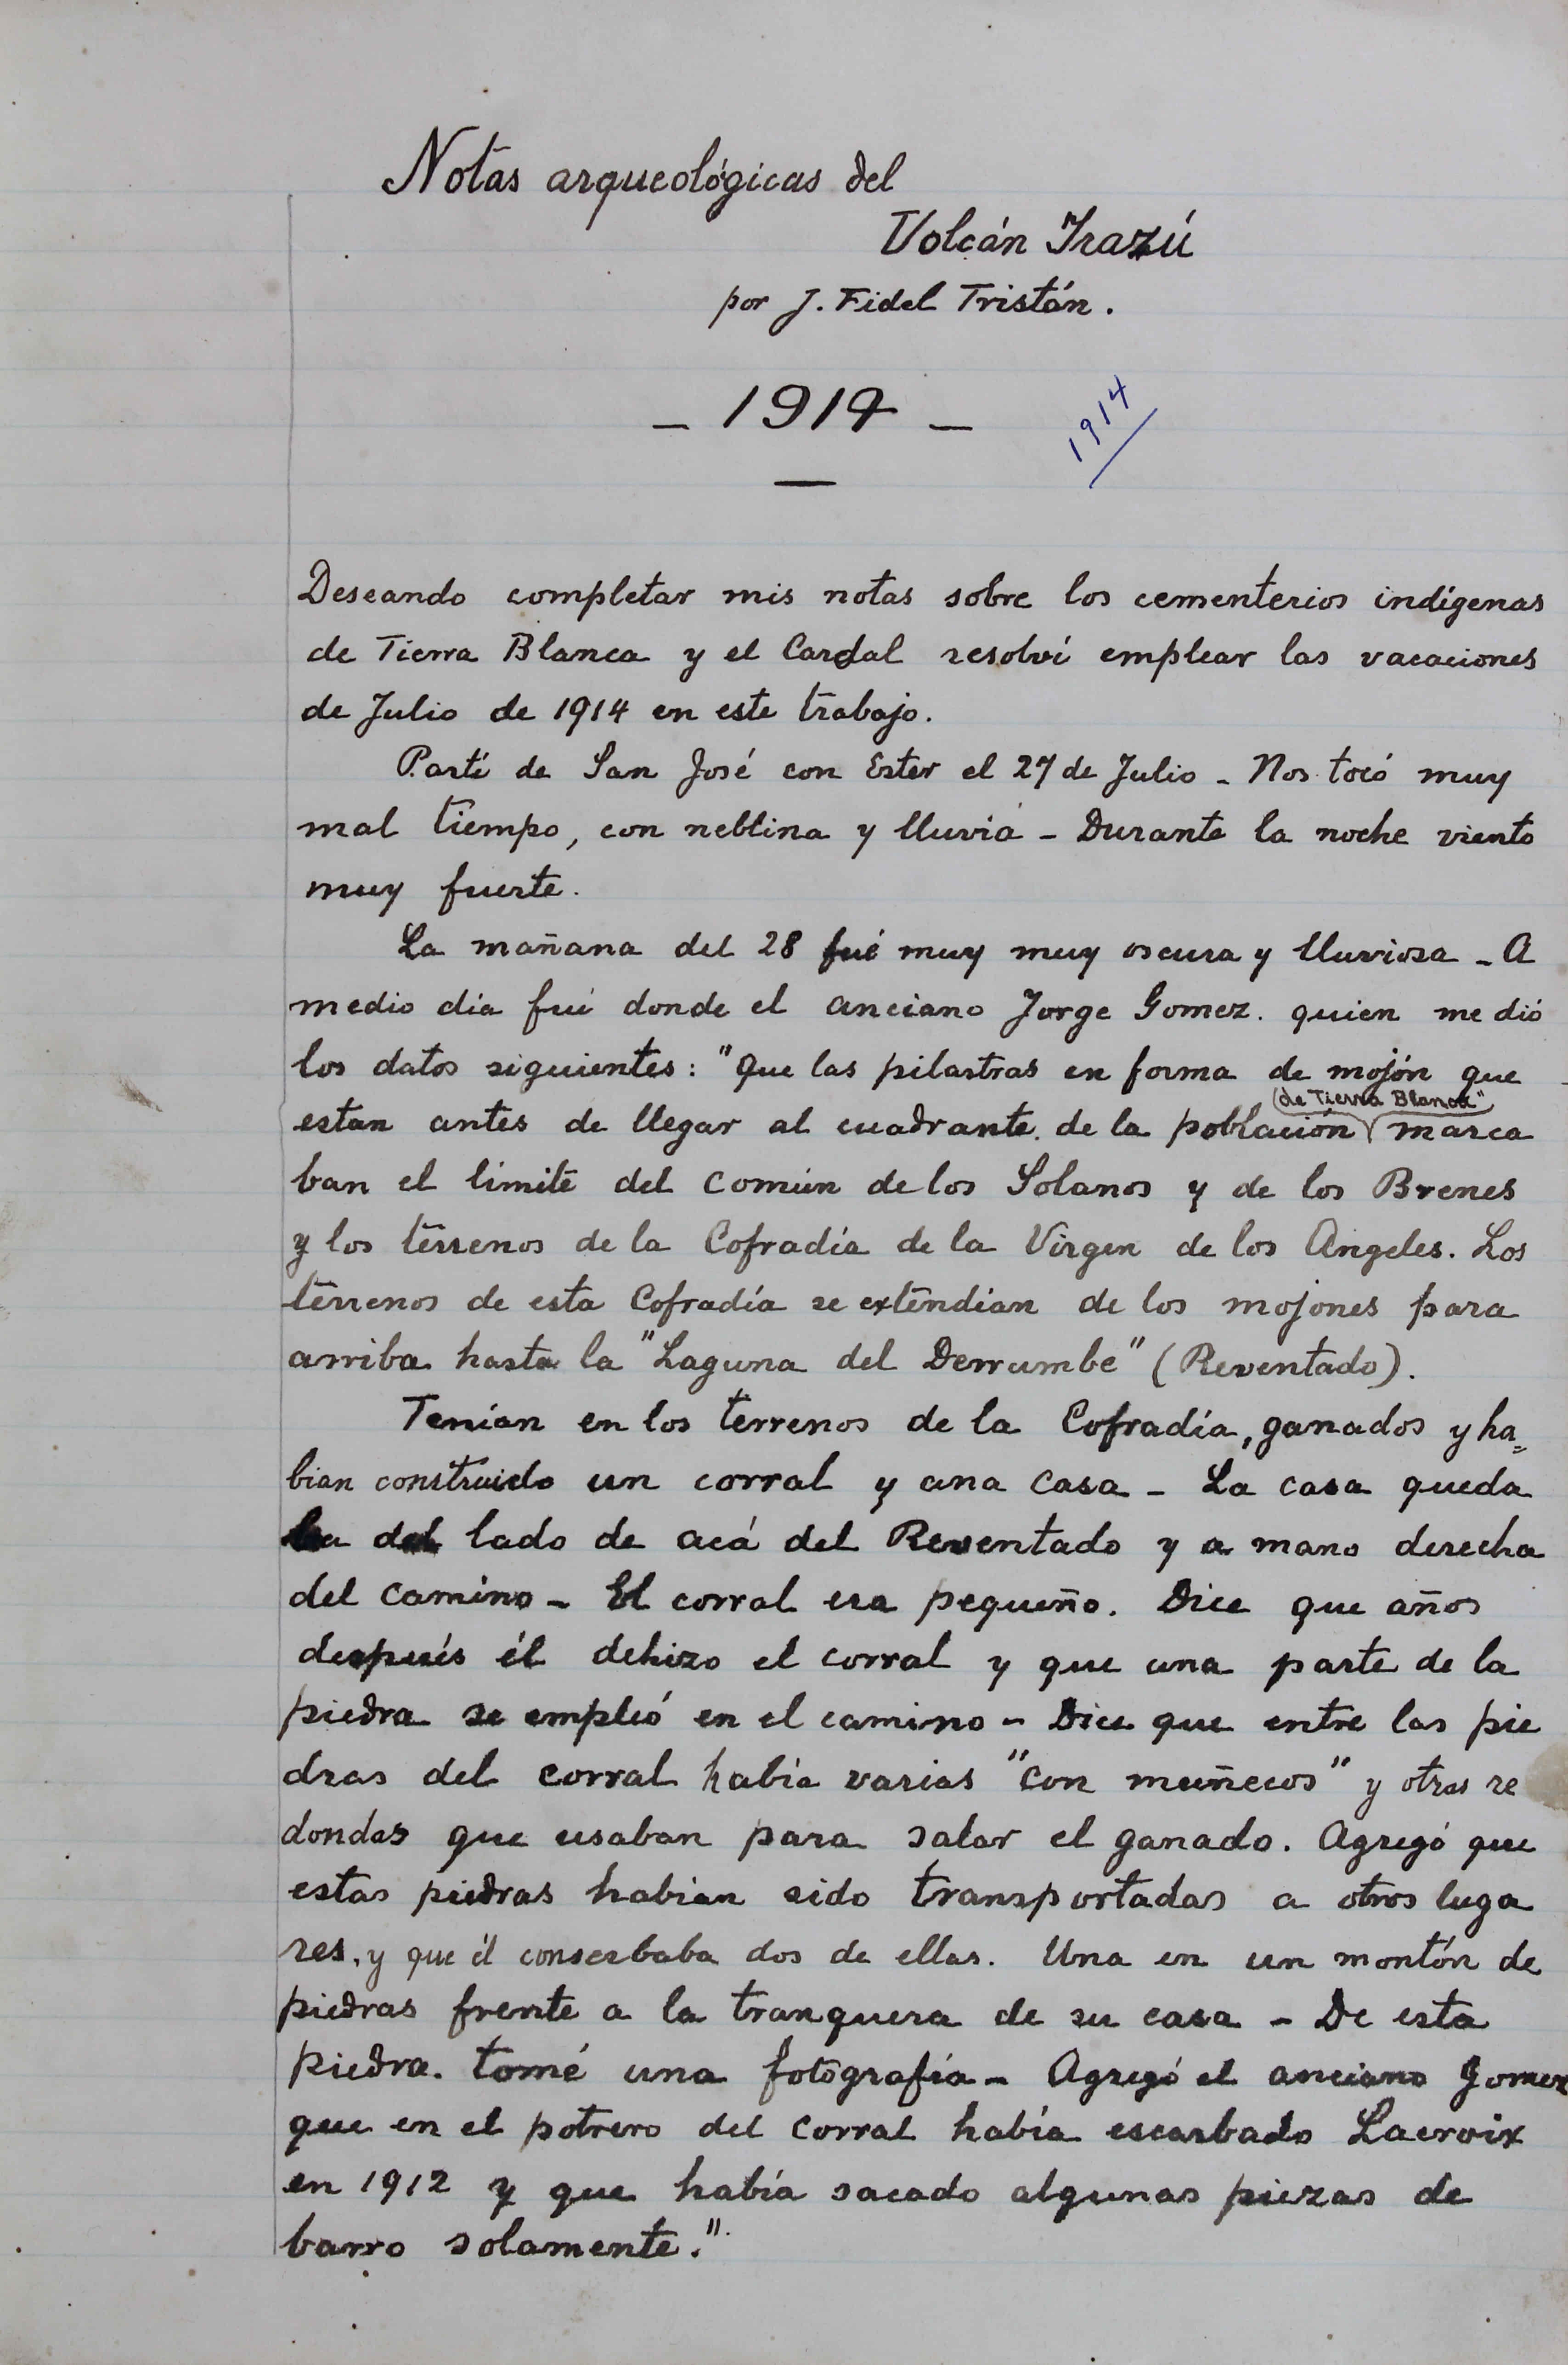 Notas arqueológicas del
Volcán Irazú
por J. Fidel Tristán.
- 1914 -
1914
Deseando completar mis notas sobre los cementerios indígenas
de Tierra Blanca y el Cardal resolví emplear las vacaciones
de Julio de 1914 en este trabajo.
Partí de San José con Ester el 27 de Julio - Nos tocó muy
mal tiempo, con neblina y lluvia - Durante la noche viento
muy fuerte.
La mañana del 28 fué muy muy oscura y lluviosa - A
medio dia fui donde el anciano Jorge Gomez. quien me dió
los datos siguientes: "Que las pilastras en forma de mojón que
(de Tierra Blanca"
estan antes de llegar al cuadrante. de la población marca
ban el limite del común de los Solanos y de los Brenes
y los terrenos de la Cofradía de la Virgen de los Angeles. Los
terrenos de esta Cofradía se extendian de los mojones para
arriba hasta la "Laguna del Derrumbe" (Reventado).
Tenían en los terrenos de la Cofradía, ganados y ha=
bian construido un corral y una casa - La casa queda
ba del lado de acá del Reventado y a mano derecha
del camino - El corral era pequeño. Dice que años
después él dehizo el corral y que una parte de la
piedra se empleó en el camino - Dice que entre las pie
dras del corral había varias "con muñecos" y otras re
dondas que usaban para salar el ganado. Agregó que
estas piedras habian sido transportadas a otros luga
res, y que él conserbaba dos de ellas. Una en un montón de
piedras frente a la tranquera de su casa - De esta
piedra. tomé una fotografía - Agregó el anciano Gomez
que en el potrero del corral había escarbado Lacroix
en 1912 y que había sacado algunas piezas de
barro solamente."